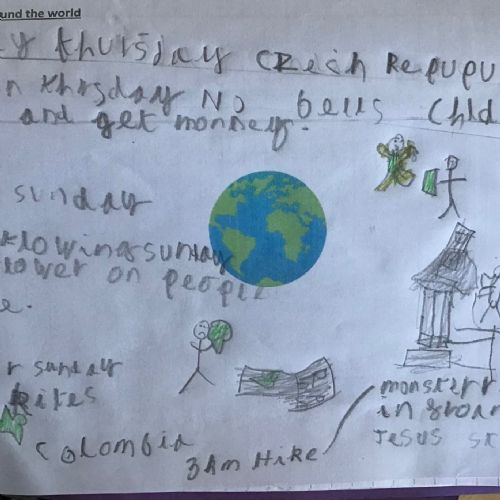 und the world
y thursday Czech Repupu
n thrsday No bells chld
and get monney.
sunday
flowing sunday
lower on people
e.
r sunday
kites
Colombia
3am Hike
monsterr
in groan
Jesus st